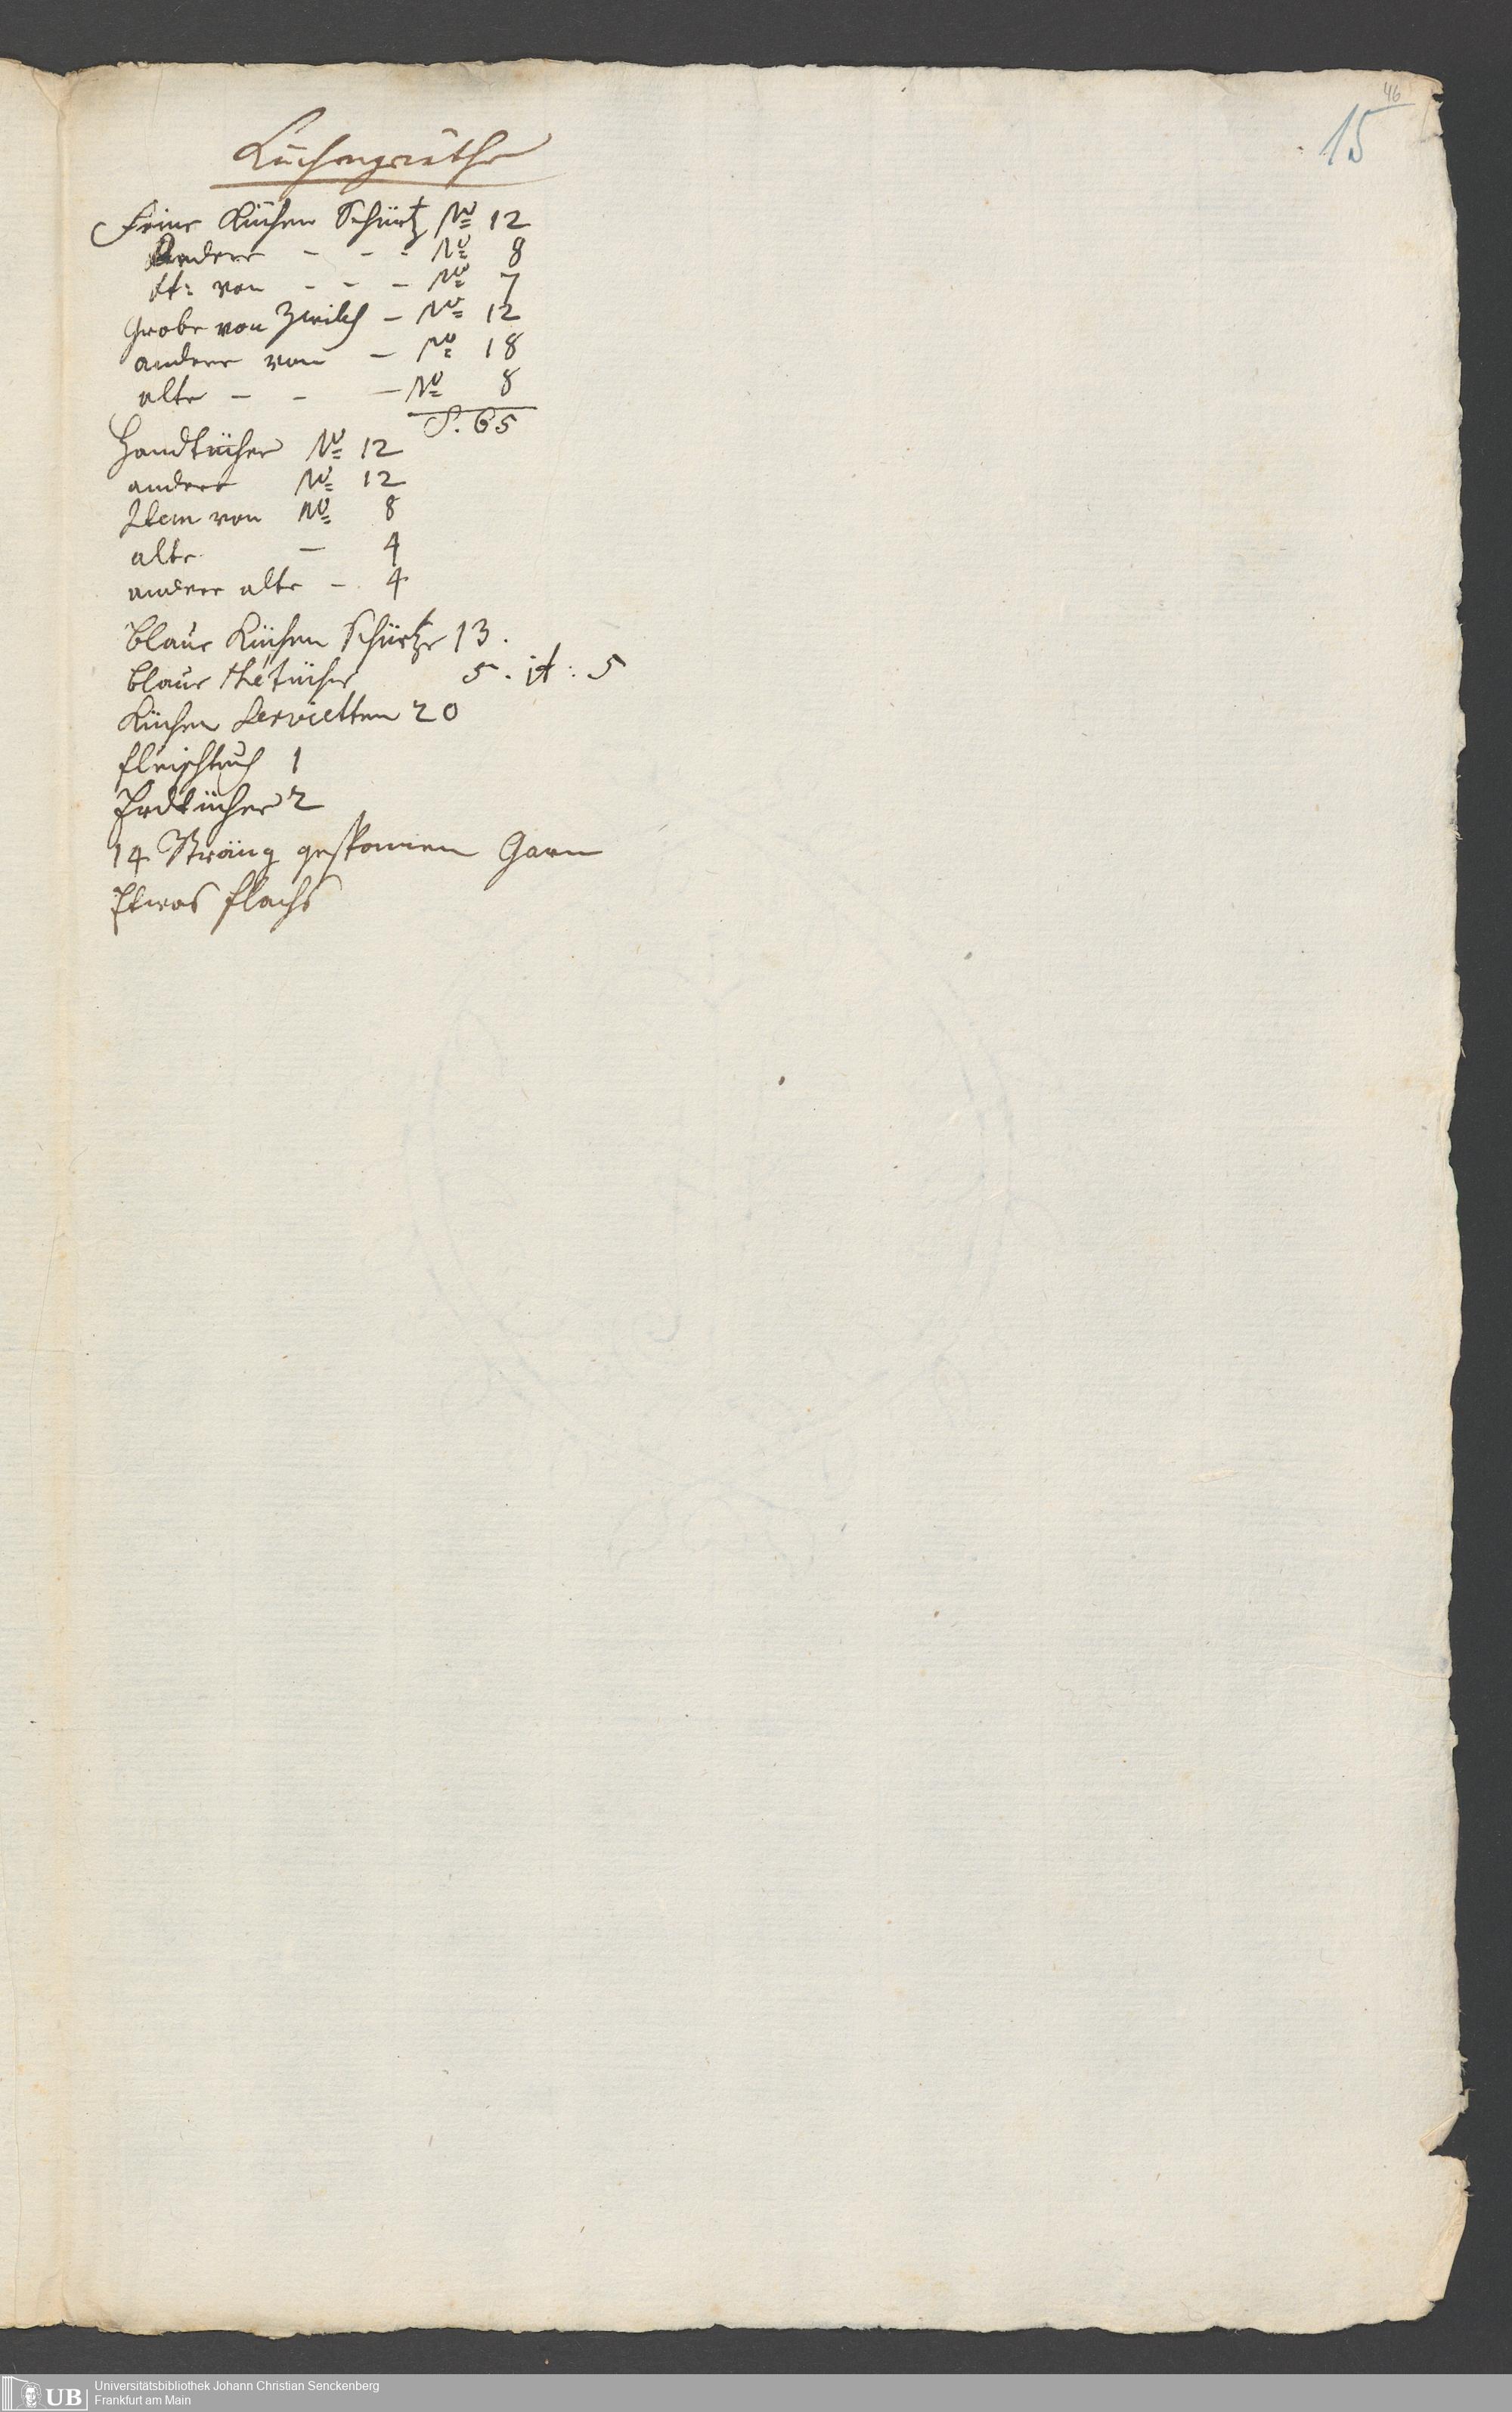 46
15
Küchengeräthe
Feine Küchen Schürtz No 12
Andere - - - No 8
It: von - - - No 7
Grobe von Zwilch - No 12
andere von - No 18
alte - - - No 8
S. 65
Handtücher No 12
andere No 12
Item von No 8
alte - 4
andere alte - 4
blaue Küchen Schürtze 13.
blaue thétücher 5. it: 5
Küchen Servietten 20
fleischtuch 1
14 Sträng gesponnen Garn
Etwas flachs
UB Universitätsbibliothek Johann Christian Senckenberg
Frankfurt am Main